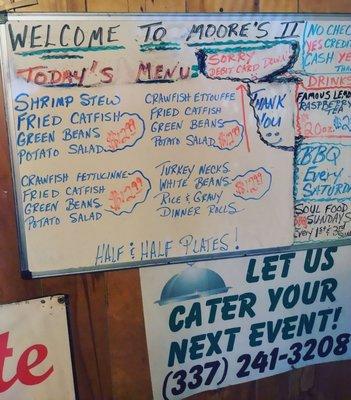 WELCOME TO MOORE'S II
TODAY'S MENU
SORRY
DEBIT CARD DOWN
NO CHEC
YES CREDIT
CASH YE
DRINKS
SHRIMP STEW
FRIED CATFISH
GREEN BEANS
POTATO SALAD
$12.99
CRAWFISH ETTOUFFE
FRIED CATFISH
GREEN BEANS
POTATO SALAD
$12.99
THANK
YOU
FAMOUS LEAD
RASPBERRY
TEA
20oz $2
CRAWFISH FETTUCINNE
FRIED CATFISH
GREEN BEANS
POTATO SALAD
$12.99
TURKEY NECKS
WHITE BEANS
RICE & GRAVY
DINNER ROLLS
BBQ
Every
SATURDA
SOUL FOOD
SUNDAYS
Every 1st & 3rd
HALF & HALF PLATES!
LET US
CATER YOUR
NEXT EVENT!
(337) 241-3208
te